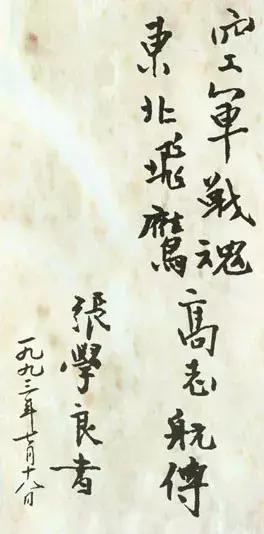 空軍戰魂
東北飛鷹高志航傳
張學良書
一九九三年七月十八日